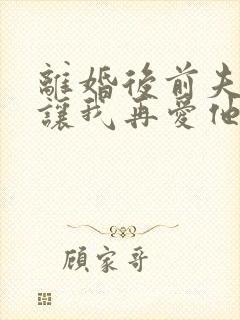 離婚後前夫
讓我再愛他
顧家哥